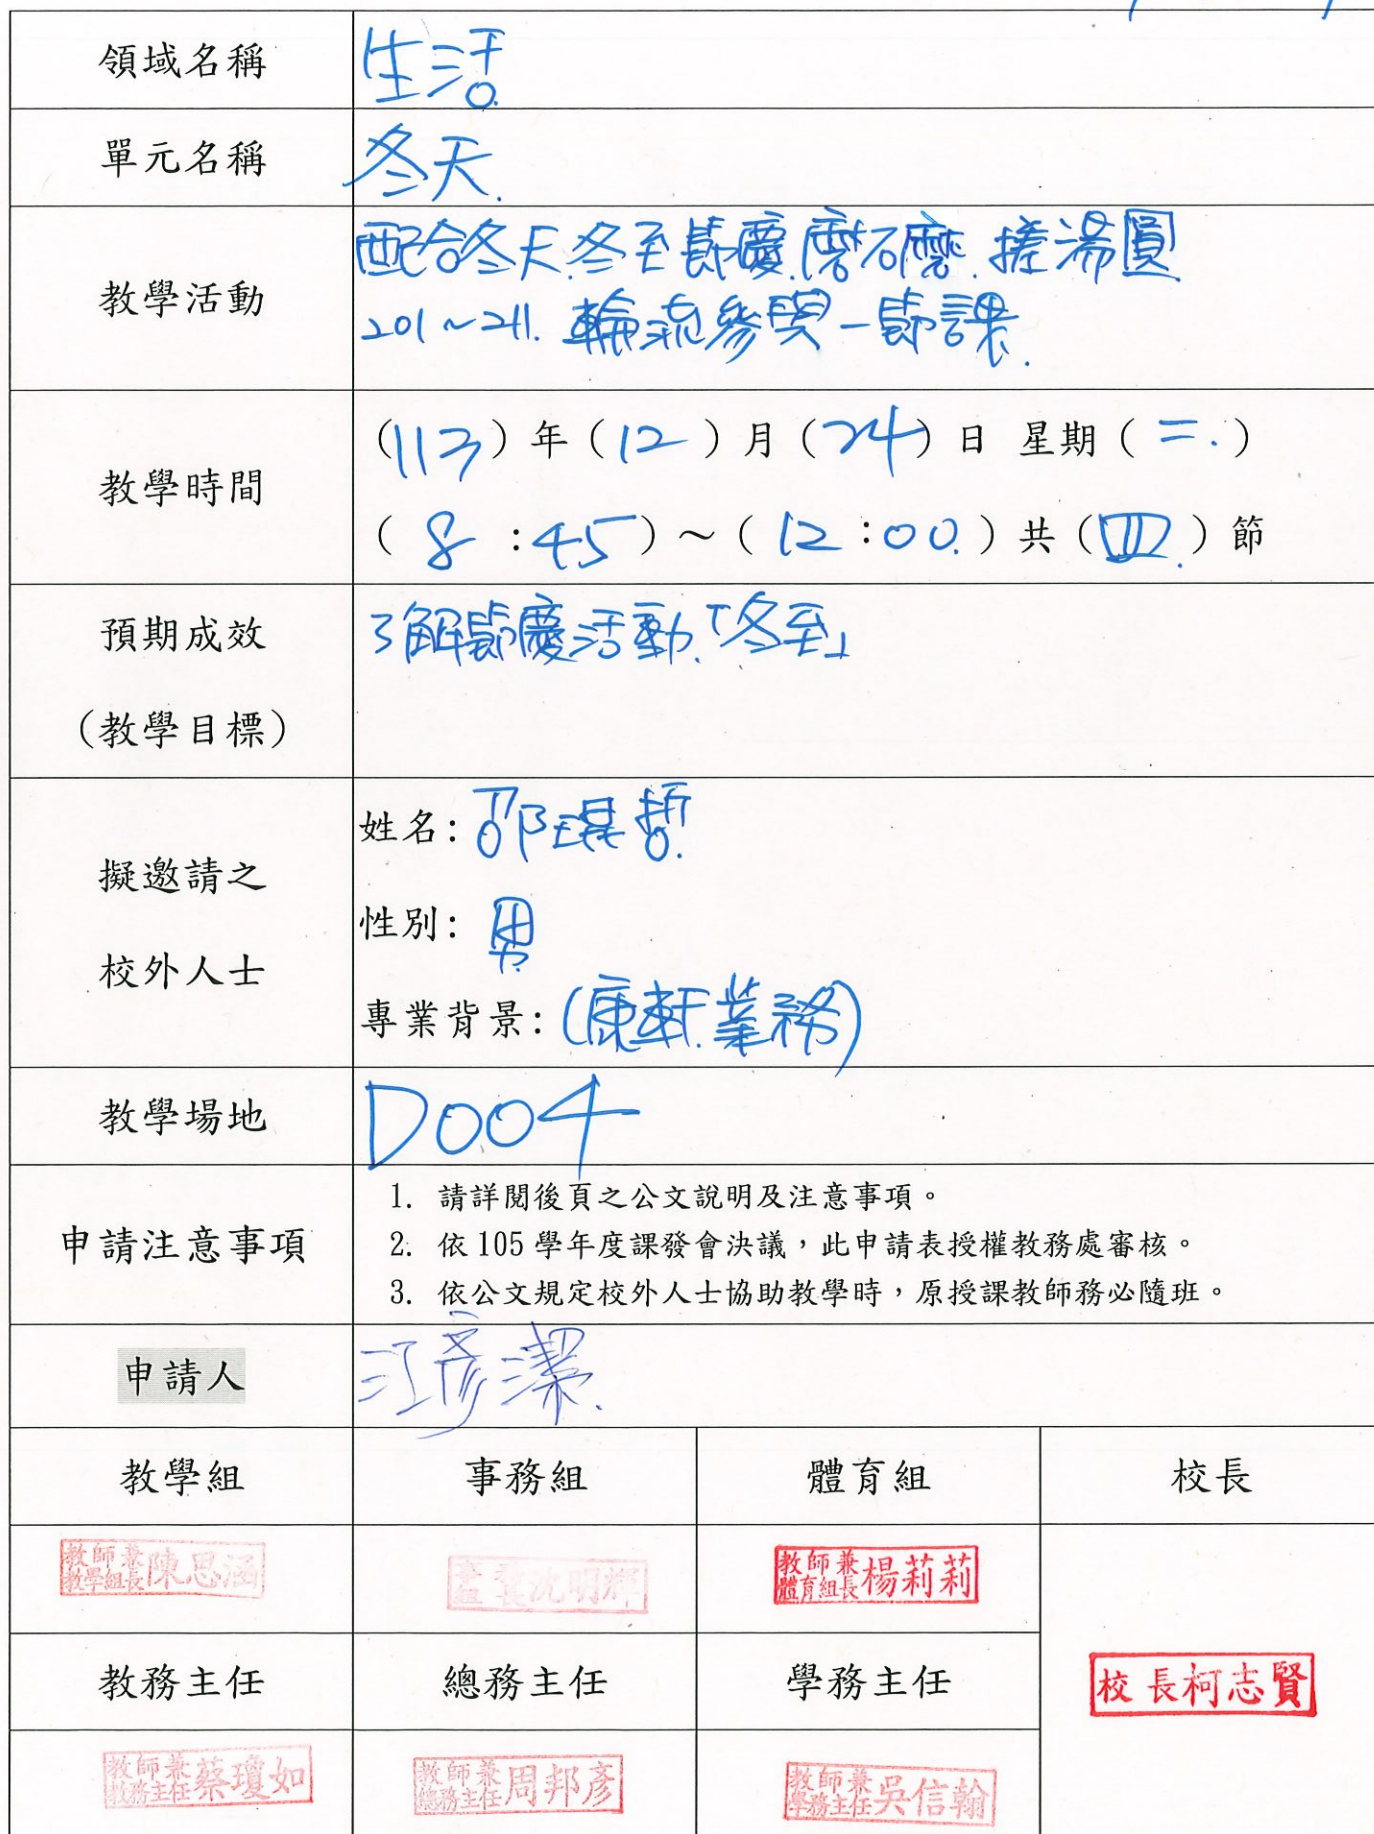 領域名稱 生活
單元名稱 冬天.
教學活動
配合冬天.冬至節慶.磨石磨.搓湯圓
201~211. 輪流參與一節課.
教學時間
(113)年(12)月(24)日 星期(二.)
(8:45)~(12:00.)共(四.)節
預期成效
(教學目標)
了解節慶活動.「冬至」
擬邀請之
校外人士
姓名:邵琪哲.
性別:男
專業背景:(康軒.業務)
教學場地 D004
申請注意事項
1. 請詳閱後頁之公文說明及注意事項。
2. 依105學年度課發會決議,此申請表授權教務處審核。
3. 依公文規定校外人士協助教學時,原授課教師務必隨班。
申請人 江彥潔.
教學組 事務組 體育組 校長
教師兼教學組長陳思涵
沈明輝
教師兼體育組長楊莉莉
校長柯志賢
教務主任 總務主任 學務主任
教師兼教務主任蔡瓊如
教師兼總務主任周邦彥
教師兼學務主任吳信翰